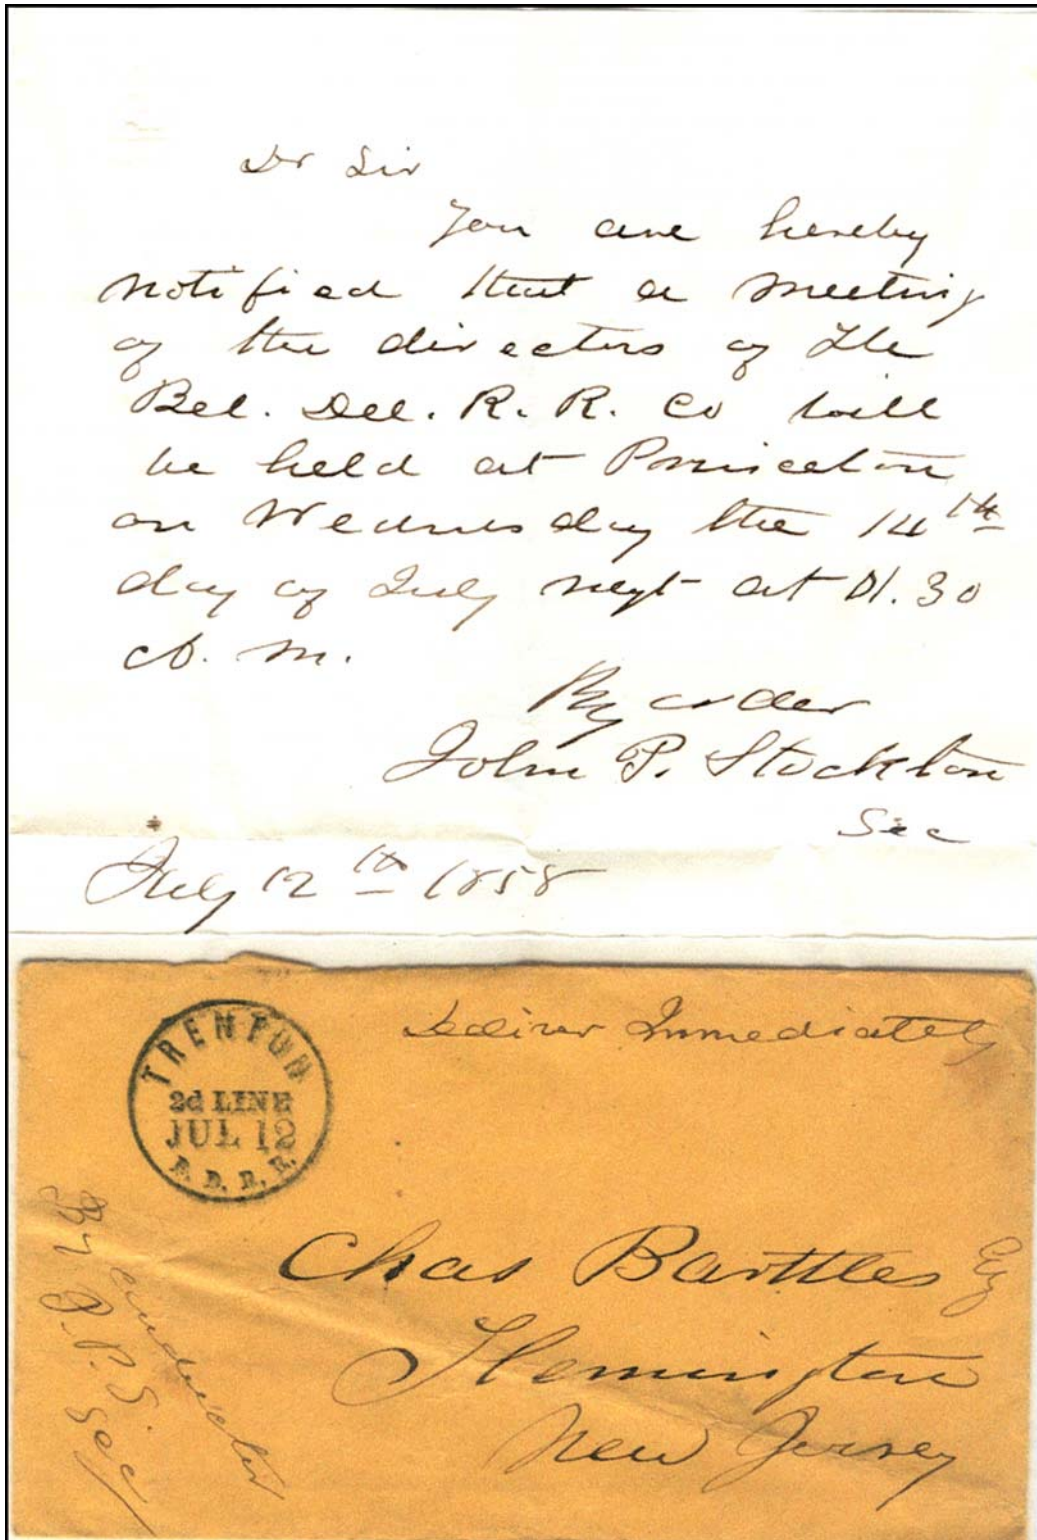 Dr Sir
You are hereby
notified that a meeting
of the directors of The
Bel. Del. R. R. Co will
be held at Princeton
on Wednesday the 14th
day of July next at
A. M.
By order
John P. Stockton
Sec
July 12th 1858
Deliver Immediately
TRENTON
2d LINE
JUL 12
B. D. R. R.
Chas Barttles Esq
Flemington
New Jersey
By conductor
J. P. S.
Sec